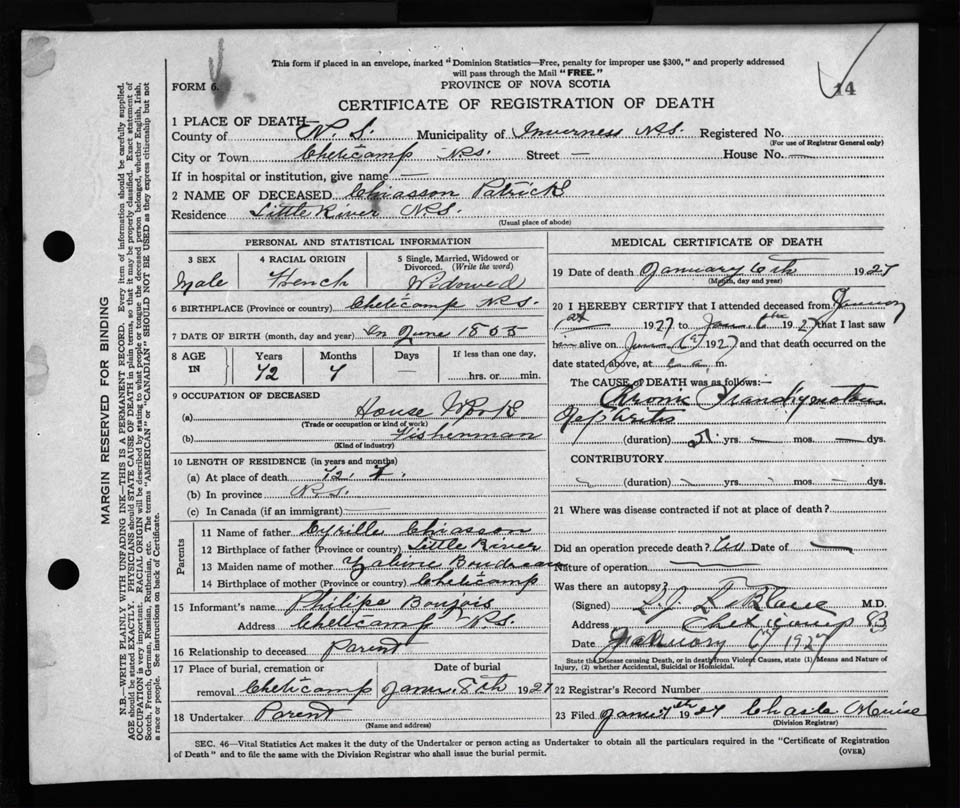 This form if placed in an envelope, marked "Dominion Statistics—Free, penalty for improper use $300," and properly addressed
will pass through the Mail "FREE."
FORM 6.
PROVINCE OF NOVA SCOTIA
14
CERTIFICATE OF REGISTRATION OF DEATH
1 PLACE OF DEATH—
County of N. S. Municipality of Inverness N.S. Registered No.
(For use of Registrar General only)
City or Town Cheticamp N.S. Street — House No. —
If in hospital or institution, give name —
2 NAME OF DECEASED Chiasson Patrick
Residence Little River N.S.
(Usual place of abode)
PERSONAL AND STATISTICAL INFORMATION
3 SEX
Male
4 RACIAL ORIGIN
French
5 Single, Married, Widowed or
Divorced. (Write the word)
Widowed
6 BIRTHPLACE (Province or country) Cheticamp N.S.
7 DATE OF BIRTH (month, day and year) In June 1855
8 AGE
IN
Years
72
Months
7
Days
—
If less than one day,
hrs. or min.
9 OCCUPATION OF DECEASED
(a) House Work
(Trade or occupation or kind of work)
(b) Fisherman
(Kind of industry)
10 LENGTH OF RESIDENCE (in years and months)
(a) At place of death 72. 7.
(b) In province N.S.
(c) In Canada (if an immigrant) —
Parents
11 Name of father Cyrille Chiasson
12 Birthplace of father (Province or country) Little River
13 Maiden name of mother Boudreau
14 Birthplace of mother (Province or country) Cheticamp
15 Informant's name Philipe
Address Cheticamp N.S.
16 Relationship to deceased Parent
17 Place of burial, cremation or
Date of burial
removal Cheticamp Janu. 8th 1927
18 Undertaker Parent
(Name and address)
MEDICAL CERTIFICATE OF DEATH
19 Date of death January 6th 1927
(Month, day and year)
20 I HEREBY CERTIFY that I attended deceased from January
1st 1927 to Jan. 6th 1927 that I last saw
him alive on 6th 1927 and that death occurred on the
date stated above, at a. m.
The CAUSE of DEATH was as follows:—
(duration) yrs. — mos. — dys.
CONTRIBUTORY
(duration) yrs. mos. dys.
21 Where was disease contracted if not at place of death?
Did an operation precede death? Date of —
Nature of operation —
Was there an autopsy?
(Signed) M.D.
Address Cheticamp
Date January 6th 1927
State the Disease causing Death, or in death from Violent Causes, state (1) Means and Nature of
Injury, (2) whether Accidental, Suicidal or Homicidal.
22 Registrar's Record Number
23 Filed 1927
(Division Registrar)
SEC. 46—Vital Statistics Act makes it the duty of the Undertaker or person acting as Undertaker to obtain all the particulars required in the "Certificate of Registration
of Death" and to file the same with the Division Registrar who shall issue the burial permit.
(OVER)
MARGIN RESERVED FOR BINDING
N.B.—WRITE PLAINLY WITH UNFADING INK—THIS IS A PERMANENT RECORD. Every item of information should be carefully supplied.
AGE should be stated EXACTLY. PHYSICIANS should STATE CAUSE OF DEATH in plain terms, so that it may be properly classified. Exact statement of
OCCUPATION is very important. RACIAL ORIGIN will be described by stating to what people or tongue the deceased person belonged, whether English, Irish,
Scotch, French, German, Russian, Ruthenian, etc. The terms "AMERICAN" or "CANADIAN" SHOULD NOT BE USED as they express citizenship but not
a race or people. See instructions on back of Certificate.